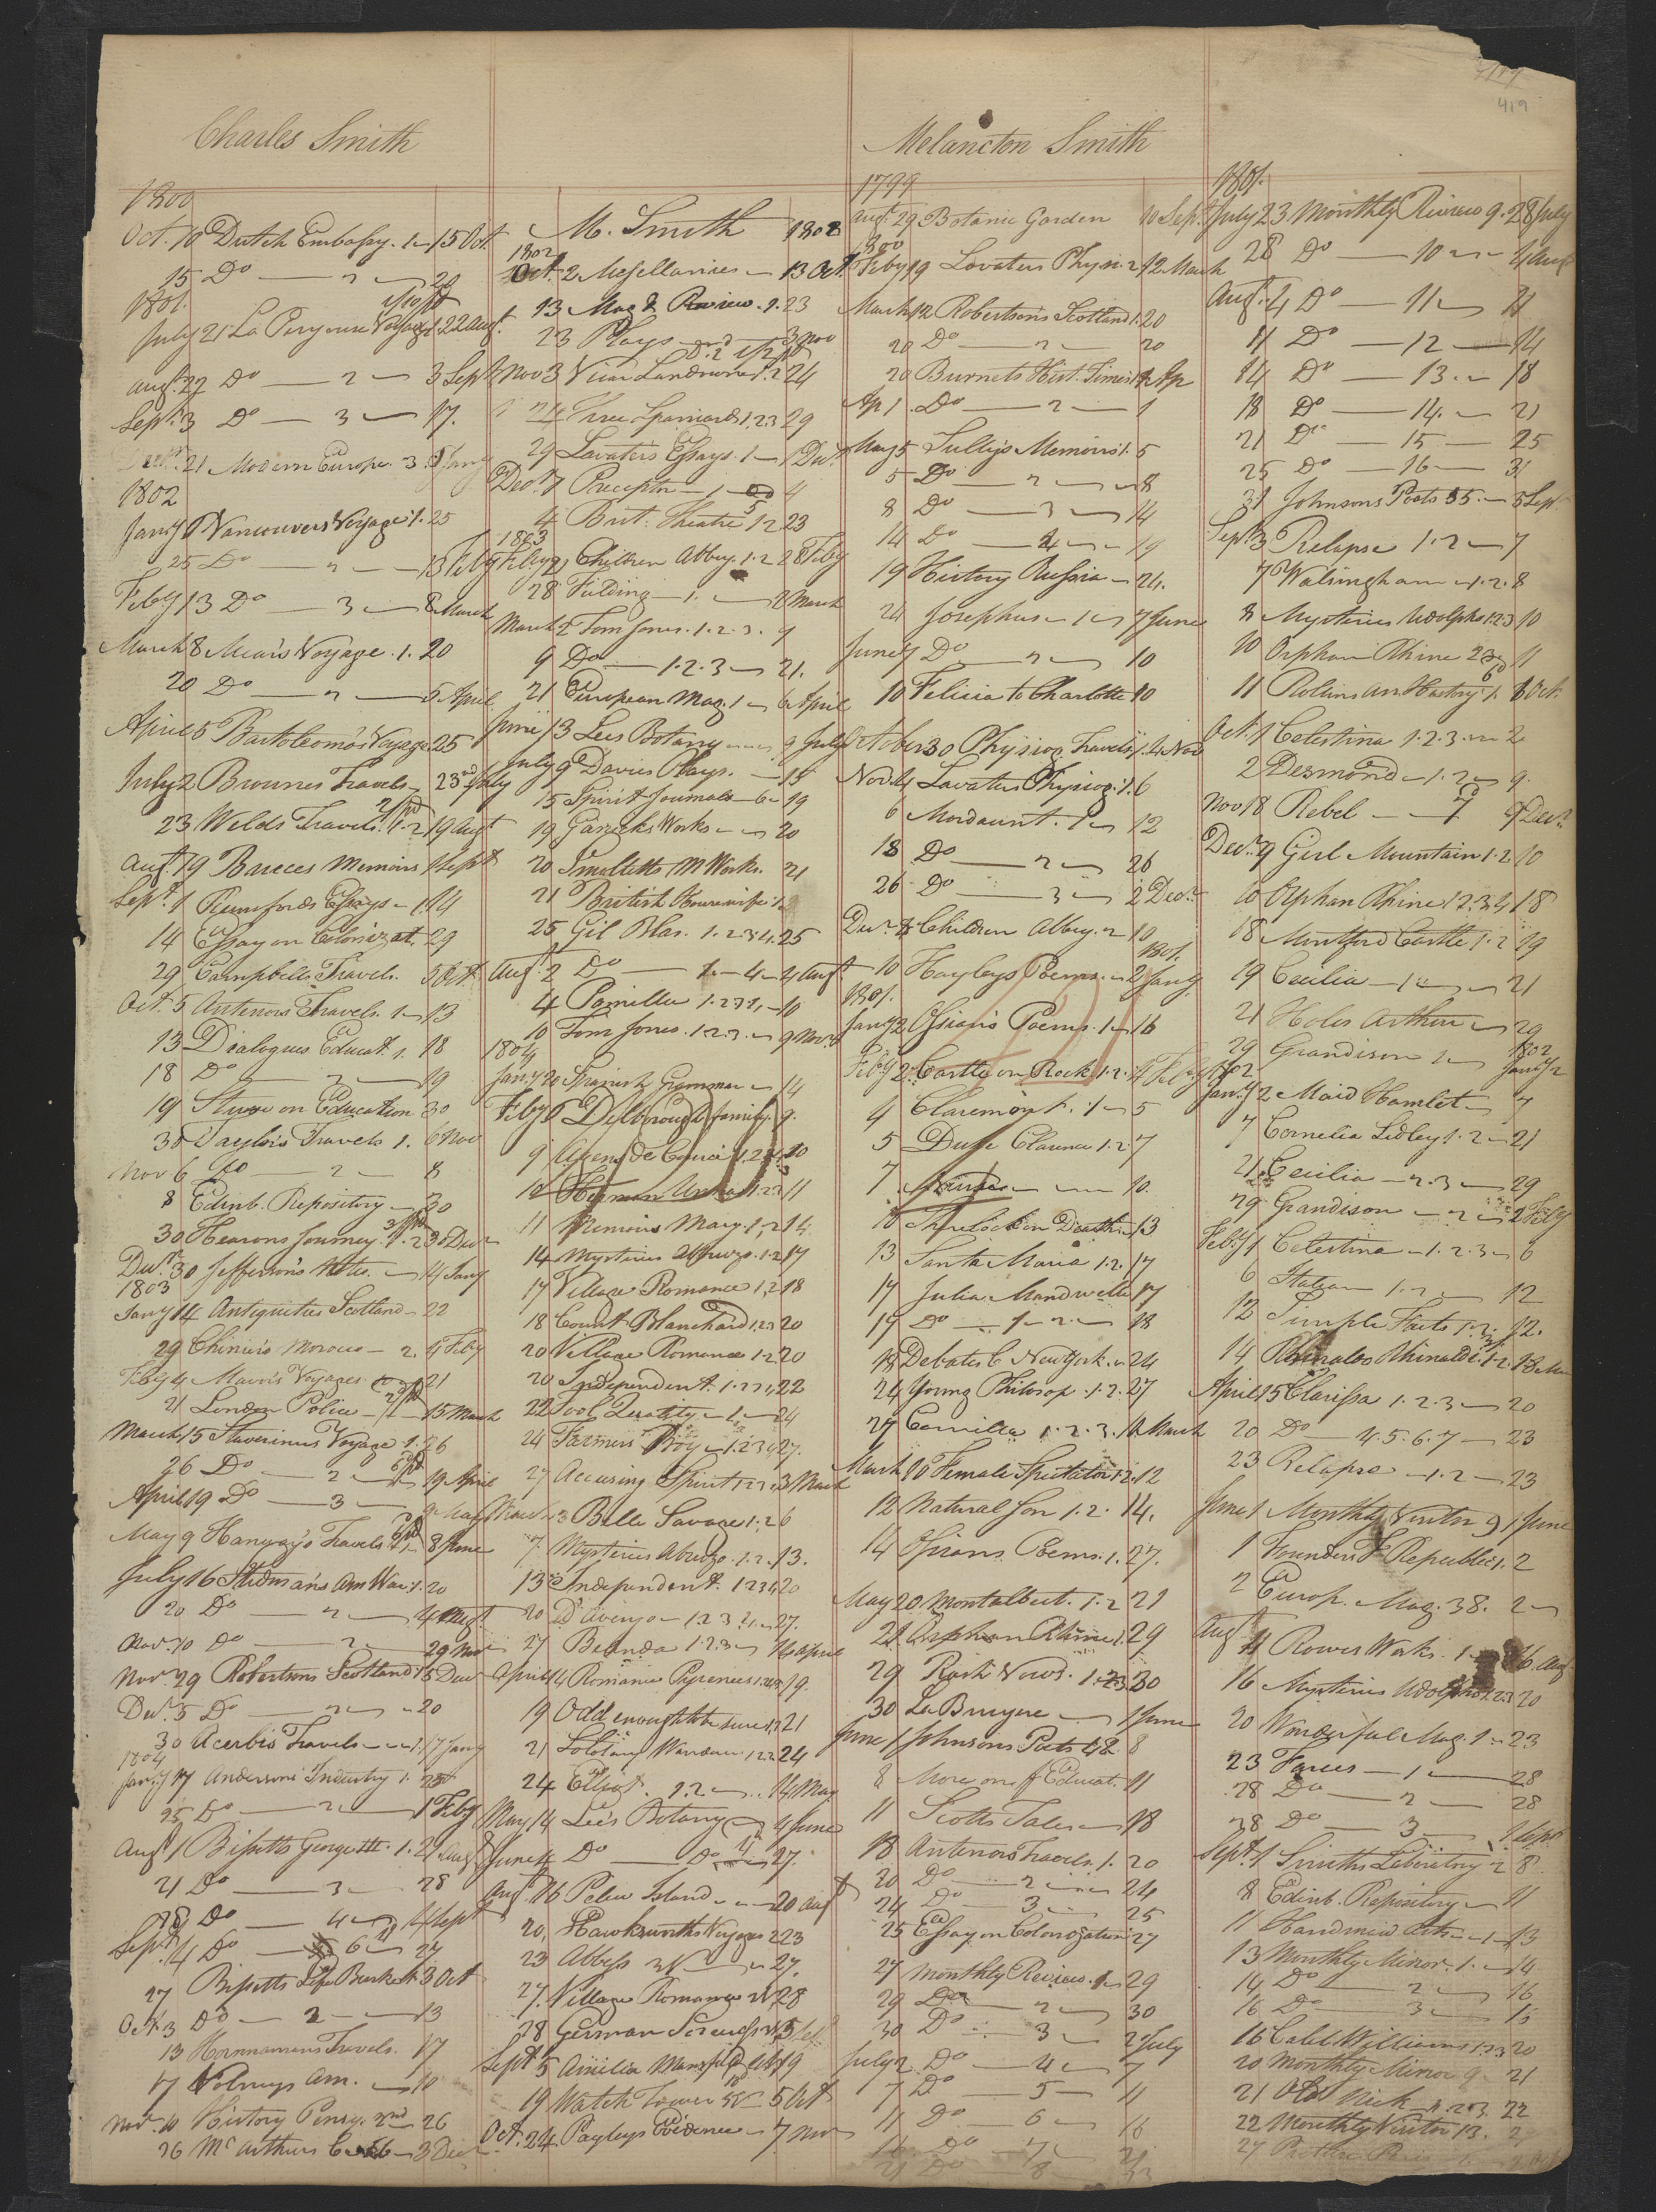 419
Charles Smith
1800
Oct. 10 Dutch Embassy. 1 15 Oct.
15 Do 2 20
1801.
July 21 La Perouse Voyage 1. 22 Aug.
Aug. 22 Do 2 3 Sept
Sept. 3 Do 3 17.
21 Modern Europe. 3
1802
Jany Vancouvers Voyage 1. 25
25 Do 2 13 Feby
Feby 13 Do 3 8 March
March 8 Mears Voyage. 1. 20
20 Do 2 5 April
April 5 Bartolomo's Voyage 25
July 2 Brownes Travels 23rd July
23 Welds Travels. 1.2 19 Augt
Augt. 19 Bareces Memoirs 1 Sept
Sept. 1 Rumfords Essays 1. 14
14 Essay on Colonizat. 29
29 Campbells Travels. 5 Oct.
Oct. 5 Antenors Travels. 1 13
13 Dialogues Educat. 1. 18
18 Do 2 19
19 on Education 30
30 Taylors Travels 1. 6 Nov
Nov 6 Do 2 8
8 Edinb. Repository 30
30 Hearons Journey. 1.2 30 Decr
Decr. 30 Jeffersons Notes. 14 Jany
1803
Jany 14 Antiquities Scotland 22
29 Cheniers Morocco 2. 4 Feby
Feby 4 Mavors Voyages. 21
21 London Police 15 March
March 15 Stavorinus Voyage 1. 26
26 Do 2 19 April
April 19 Do 3 9 May
May 9 Hanway's Travels 8 June
July 16 Stedman's Am War. 1. 20
20 Do 2 4 Augt.
Nov. 10 Do 2 29 Nov
Nov. 29 Robertsons Scotland 1 5 Decr
Decr. 5 Do 2 20
30 Acerbis Travels 1. 17 Jany
1804
Jany 17 Andersons Industry 1. 25
25 Do 2 1 Feby
Augt 1 Bissetts George III. 1. 21 Augt
21 Do 3 28
28 Do 4 14 Sept
Sept. 14 Do 6 27
27 Bissetts Life Burke 1. 3 Oct
Oct. 3 Do 2 13
13 Hornnemans Travels. 17
17 Volneys Am. 10
Nov. 10 History Pensy. 2nd 26
26 McArthurs 3 Decr
M. Smith 1802
1802
Oct. 2 Misellanies 13 Oct.
13 Mag & Review. 1. 23
23 Plays 3 Nov
Nov 3 Vicar Landsdowne 1.2 24
24 Three Spaniards 1.2.3 29
29 Lavaters Essays. 1 1 Decr.
Decr. 1 Preceptor 1 4
4 Brit. Theatre 1 2 23
1803
Feby 21 Children Abbey. 1.2 28 Feby
28 Fielding 1. 2 March
March 2 Tom Jones. 1.2.3. 9
9 Do 1.2.3 21.
21 European Mag. 1 6 April
June 13 Lees Botany 9 July
July 9 Davies Plays. 15
15 Spirit Journals 6 19
19 Garricks Works 20
20 Smolletts M Works. 21
21 British Housewife 1.2
25 Gil Blas. 1.2.3.4. 25
Aug. 2 Do 1 4 4 Augt
4 Pamilla 1.2.3.4 10
10 Tom Jones. 1.2.3. 9 Nov.
1804
Jany 20 Spanish Grammar 14
Feby 6 Delborough family. 9.
9 10
10 Herman Unna 1.2.3 11
11 Memoirs Mary. 1.2 14
14 Mysteries Abruzo. 1.2 17
17 Village Romance 1.2 18
18 Count Blanchard 1.2.3 20
20 Village Romance 1.2 20
20 Independent. 1.2.3 22
22 Fool Quality 1. 24
24 Farmers Boy 1.2.3.4 27.
27 Accusing Spirit 1.2.3 3 March
March 3 Belle Savage 1.2 6
7 Mysteries Abruzo. 1.2. 13.
13 Independent. 1 2 3 4 20
20 D'Averyo 1 2 3 4. 27.
27 Belinda 1.2.3 14 April
April 14 Romance Pyrenees 1.2.3.4 19.
19 Odd enough to be sure 1.2 21
21 Solitary Wanderer 1.2.3 24
24 Elliot. 1.2 14 May
May 14 Lee's Botany 4 June
June 4 Do Do 27.
Augt. 16 Pelew Island 20 Augt
20 Hawksworths Voyages 2 23
23 Abbess 27.
27. Village Romance 28
28 German 5 Sept
Sept 5 Amelia Mansfield 19
19 Watch Tower 5 Oct
Oct. 24 Payleys Evidence 7 Nov
Melancton Smith
1799
Augt. 29 Botanic Garden 10 Sept.
1800
Feby 19 Lavaters Physi. 2 12 March
March 12 Robertsons Scotland 1. 20
20 Do 2 20
20 Burnets Hist. Times 1 1 Ap
Ap 1. Do 2 1
May 5 Sullys Memoirs 1. 5
5 Do 2 8
8 Do 3 14
14 Do 4 19
19 History Russia 24.
24 Josephus 1 7 June
June 7 Do 2 10
10 Felicia to Charlotte 10
October 30 Physiog Travels 1. 4 Nov
Nov. 4 Lavaters Physiog. 1. 6
6 Mordaunt. 1 12
18 Do 2 26
26 Do 3 2 Decr
Decr. Children Abbey. 2 10
1801.
10 Hayleys Poems 2 Jany
1801.
Jany 2 Ossian's Poems. 1 16
Feby 2 Castle on Rock 1.2. 4 Feby
4 Claremont. 1 5
5 Duke Clarence 1.2 7
7 10.
10 13
13 Santa Maria 1.2. 17
17 Julia Mandeville 17
17 Do 1 2 18
18 Debates C NewYork. 24
24 Young Philosop. 1.2. 27
27 Camilla 1.2.3. 10 March
March 10 Female Spectator 1.2. 12
12 Natural Son 1.2. 14.
14 Ossians Poems. 1. 27.
May 20. Montalbert. 1.2 21
21 Orphan Rhine 1. 29
29 Rash Vows. 1.2.3 30
30 La Bruyere 1 June
June 1 Johnsons Poets 48. 8
8 More on f Educat. 11
11 Scotts Tales 18
18 Antenors Travels. 1. 20
20 Do 2 24
24 Do 3 25
25 Essay on Colonization 27
27 Monthly Review. 1 29
29 Do 2 30
30 Do 3 2 July
July 2 Do 4 7
7 Do 5 11
11 Do 6 16
16 Do 7 21
21 Do 8 23
1801.
July 23 Monthly Review 9. 28 July
28 Do 10 4 Aug
Aug. 4 Do 11 11
11 Do 12 14
14 Do 13. 18
18 Do 14. 21
21 Do 15 25
25 Do 16 31
31 Johnsons Poets 55. 3 Sept.
Sept. 3 Relapse 1.2 7
7 Walsingham 1.2. 8
8 Mysteries Udolpho 1.2.3 10
10 Orphan Rhine 2 11
11 Rolins an History 1. 1 Oct.
Oct. 1 Celestina 1.2.3. 2
2 Desmond 1.2 9.
Nov 18 Rebel 9 Decr.
Decr. 9 Girl Mountain 1.2. 10
10 Orphan Rhine 1.2.3.4 18
18 Muntford Castle 1.2 19
19 Cecilia 1 21
21 Holes Arthur 29
1802
29 Grandison 1 Jany 2
1802
Jany 2 Maid Hamlet 7
7 Cornelia Sedley 1.2 21
21 Cecilia 2.3 29
29 Grandison 2 1 Feby
Feby 1 Celestina 1.2.3 6
6 Italian 1.2 12
12 Simple Facts 1.2. 12.
14 Rhinaldo Rhinaldi. 1.2.
April 15 Clarissa 1.2.3 20
20 Do 4.5.6.7 23
23 Relapse 1.2 23
June 1 Monthly Visitor 9 1 June
1 Founders F Republic 1. 2
2 Europ. Mag. 38. 2
Aug. 11 Rowes Works. 1 16. Aug.
16 Mysteries Udolpho 1.2.3 20
20 Wonderful Mag. 1 23
23 Farces 1 28
28 Do 2 28
28 Do 3 1 Sept
Sept. 1 Smiths Laboratory 2 8
8 Edinb. Repository 11
11 Handmaid Arts 1 13
13 Monthly Mirror. 1. 14
14 Do 2 16
16 Do 3 16
16 Caleb Williams 1.2.3 20
20 Monthly Mirror 9. 21
21 Old Nick 1.2.3. 22
22 Monthly Visitor 13.
27